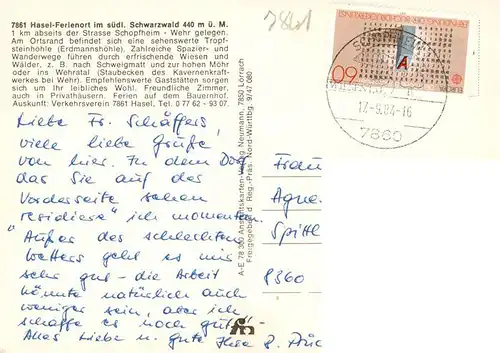 7861 Hasel-Ferienort im südl. Schwarzwald 440 m ü. M.
1 km abseits der Strasse Schopfheim - Wehr gelegen.
Am Ortsrand befindet sich eine sehenswerte Tropf-
steinhöhle (Erdmannshöhle). Zahlreiche Spazier- und
Wanderwege führen durch erfrischende Wiesen und
Wälder, z. B. nach Schweigmatt und zur hohen Möhr
oder ins Wehratal (Staubecken des Kavernenkraft-
werkes bei Wehr). Empfehlenswerte Gaststätten sorgen
sich um Ihr leibliches Wohl. Freundliche Zimmer,
auch in Privathäusern. Ferien auf dem Bauernhof.
Auskunft: Verkehrsverein 7861 Hasel, Tel. 0 77 62 - 93 07.
Liebe Fr. Schäffers,
viele liebe Grüße
von hier. In dem Dorf
das Sie auf der
Vorderseite sehen
"residiere" ich momentan.
Außer des schlechten
Wetters geht es mir
sehr gut - die Arbeit
könnte natürlich auch
weniger sein, aber ich
schaffe es noch gut.
Alles Liebe u. gute
A-E 78 360 Ansichtskarten-Verlag Neumann, 7850 Lörrach
Freigegeben d. Reg.-Präs. Nord-Württbg. 9/47 080
7861
60
A
EUROPA
DEUTSCHE BUNDESPOST
17-9.87-16
7860
Frau
Agne
Spittl
8360